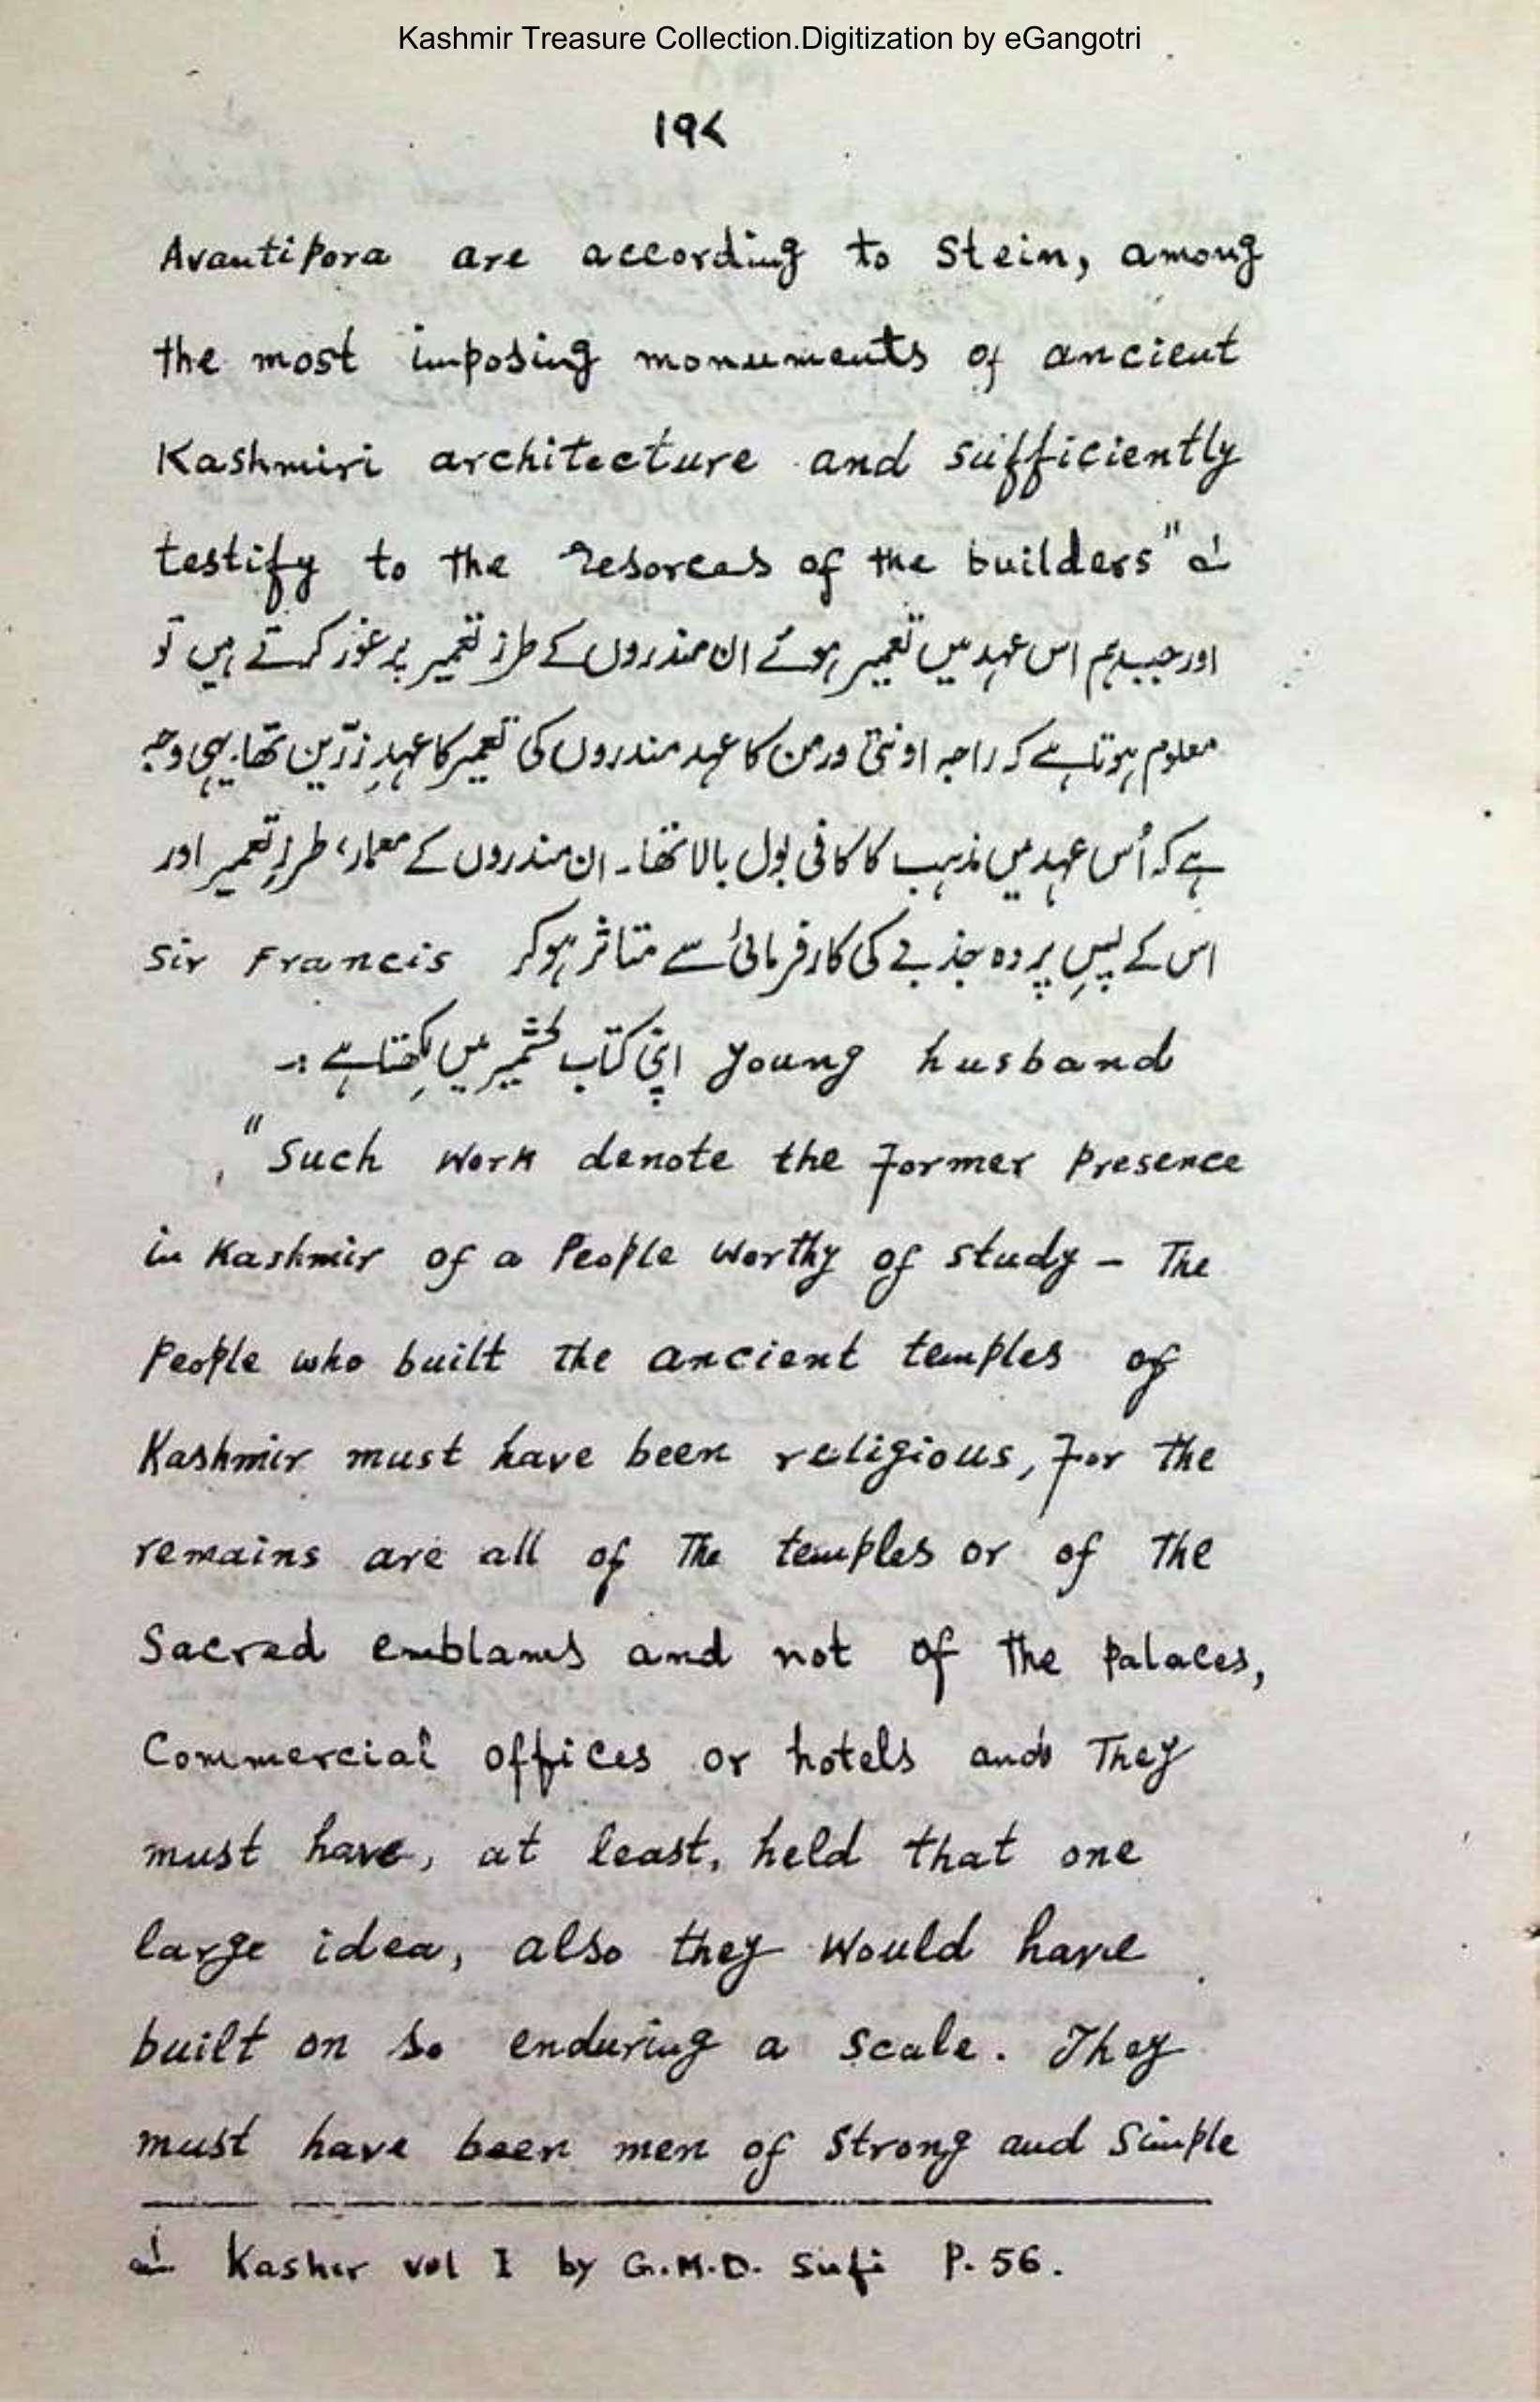 Kashmir Treasure Collection.Digitization by eGangotri
۱۹۷
Avantipora are according to Stein, among
the most imposing monuments of ancient
Kashmiri architecture and sufficiently
testify to the resorces of the builders" ؎۱
اور جب ہم اس عہد میں تعمیر ہوئے ان مندروں کے طرز تعمیر پر غور کرتے ہیں تو
معلوم ہوتا ہے کہ راجہ اونتی ورمن کا عہد مندروں کی تعمیر کا عہدِ زرّین تھا۔ یہی وجہ
ہے کہ اُس عہد میں مذہب کا کافی بول بالا تھا۔ ان مندروں کے معمار، طرزِ تعمیر اور
اس کے پسِ پردہ جذبے کی کارفرمائی سے متاثر ہوکر Sir Francis
young husband اپنی کتاب کشمیر میں لکھتا ہے :۔
"Such work denote the former presence
in Kashmir of a People worthy of study – The
People who built the ancient temples of
Kashmir must have been religious, for the
remains are all of the temples or of the
Sacred emblams and not of the palaces,
Commercial offices or hotels and They
must have, at least, held that one
large idea, also they would have
built on so enduring a scale. They
must have been men of strong and simple
؎۱ Kasher vol I by G.M.D. Sufi P. 56.